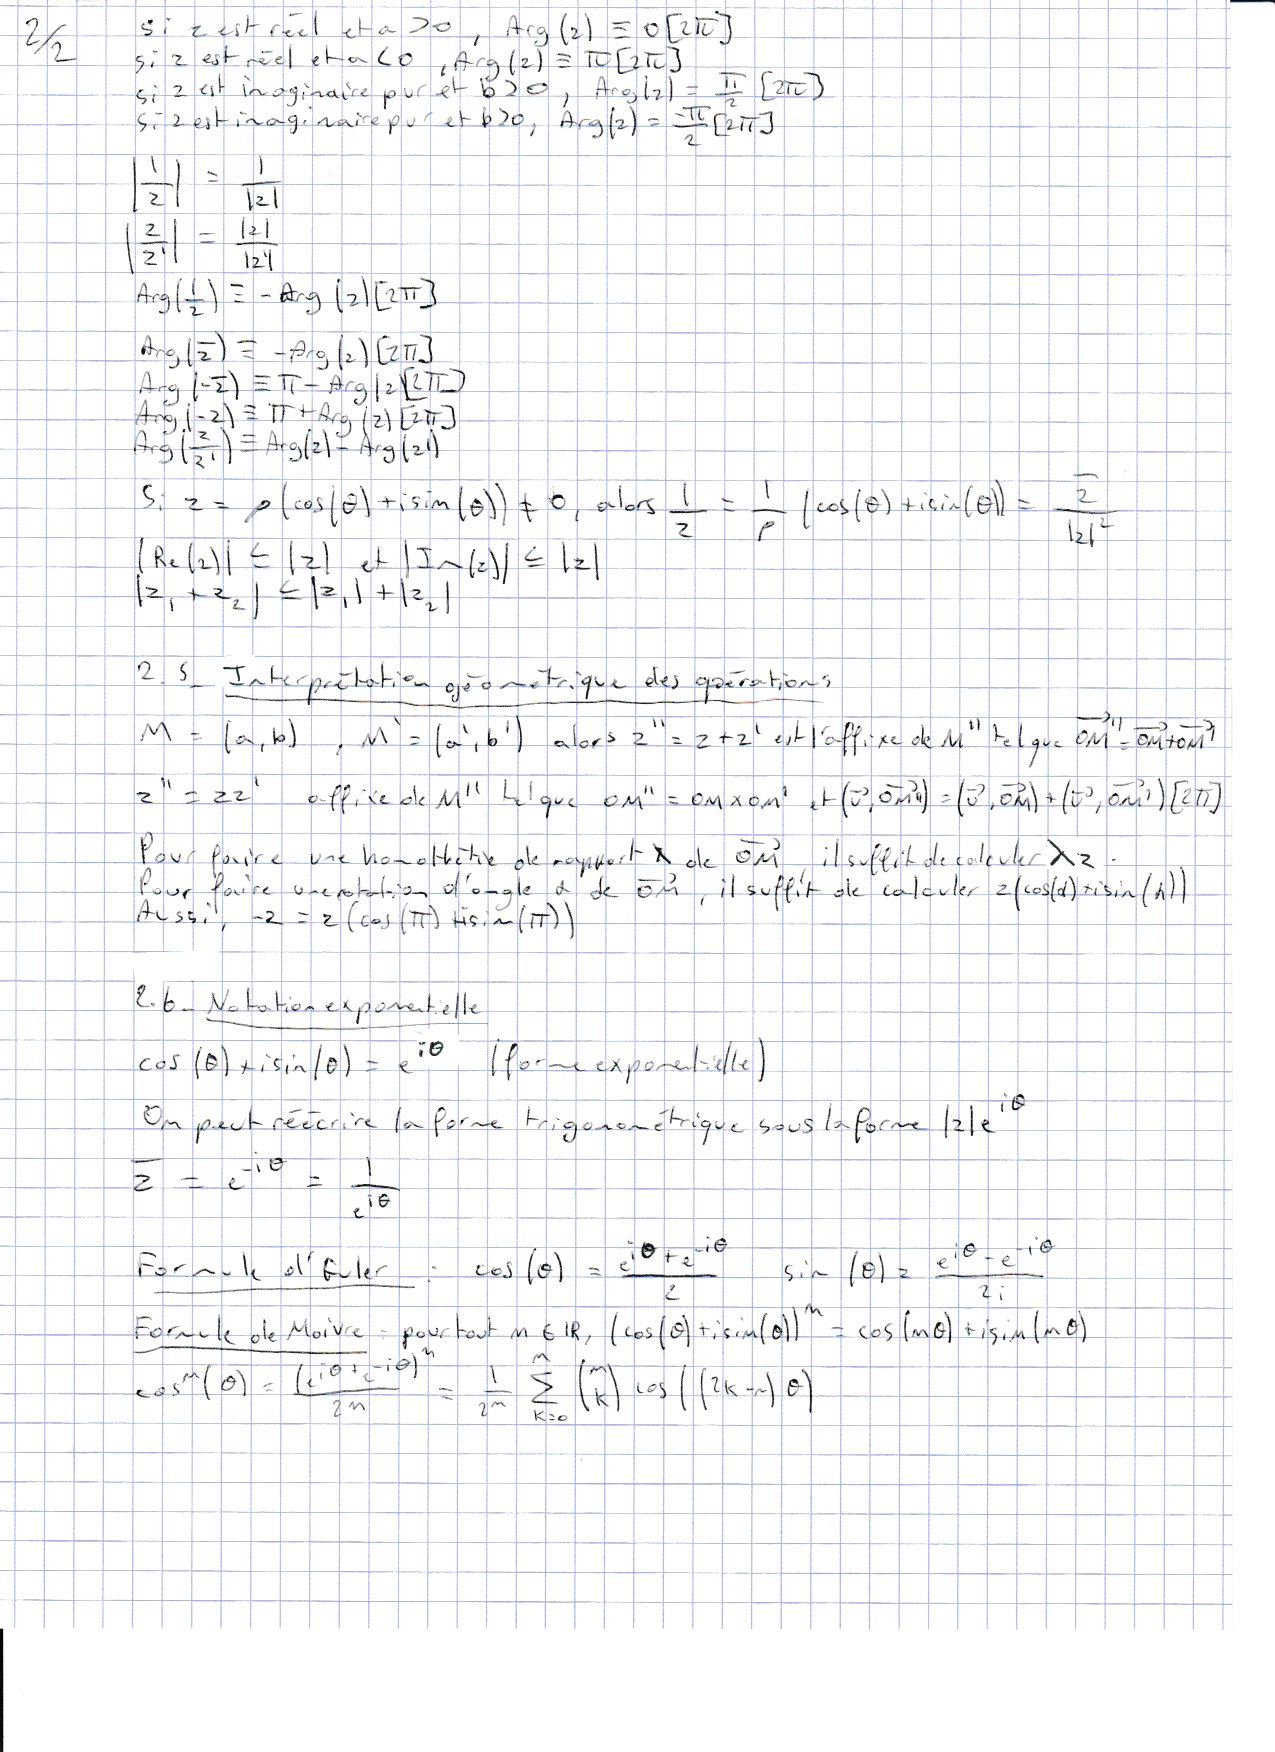 2/2
si z est réel et a > 0, Arg(z) ≡ 0 [2π]
si z est réel et a < 0, Arg(z) ≡ π [2π]
si z est imaginaire pur et b > 0, Arg(z) = π/2 [2π]
si z est imaginaire pur et b > 0, Arg(z) = -π/2 [2π]
|1/z| = 1/|z|
|z/z'| = |z|/|z'|
Arg(1/z) ≡ -Arg(z) [2π]
Arg(z̅) ≡ -Arg(z) [2π]
Arg(-z̅) ≡ π - Arg(z) [2π]
Arg(-z) ≡ π + Arg(z) [2π]
Arg(z/z') ≡ Arg(z) - Arg(z')
Si z = ρ(cos(θ) + isin(θ)) ≠ 0, alors 1/z = 1/ρ (cos(θ) + isin(θ)) = z̅/|z|²
|Re(z)| ≤ |z| et |Im(z)| ≤ |z|
|z₁ + z₂| ≤ |z₁| + |z₂|
2.5_ Interprétation géométrique des opérations
M = (a, b), M' = (a', b') alors z'' = z + z' est l'affixe de M'' tel que OM⃗'' = OM⃗ + OM⃗'
z'' = zz' affixe de M'' tel que OM'' = OM x OM' et (u⃗, OM⃗'') = (u⃗, OM⃗) + (u⃗, OM⃗') [2π]
Pour faire une homothétie de rapport λ de OM⃗, il suffit de calculer λz.
Pour faire une rotation d'angle α de OM⃗, il suffit de calculer z(cos(α) + isin(α))
Aussi, -z = z(cos(π) + isin(π))
2.6_ Notation exponentielle
cos(θ) + isin(θ) = e^{iθ} (forme exponentielle)
On peut réécrire la forme trigonométrique sous la forme |z|e^{iθ}
z̅ = e^{-iθ} = 1/e^{iθ}
Formule d'Euler : cos(θ) = (e^{iθ} + e^{-iθ})/2 sin(θ) = (e^{iθ} - e^{-iθ})/2i
Formule de Moivre : pour tout n ∈ IR, (cos(θ) + isin(θ))^n = cos(nθ) + isin(nθ)
cos^n(θ) = (e^{iθ} + e^{-iθ})^n/2^n = 1/2^n ∑_{k=0}^{n} (n k) cos((2k-n)θ)